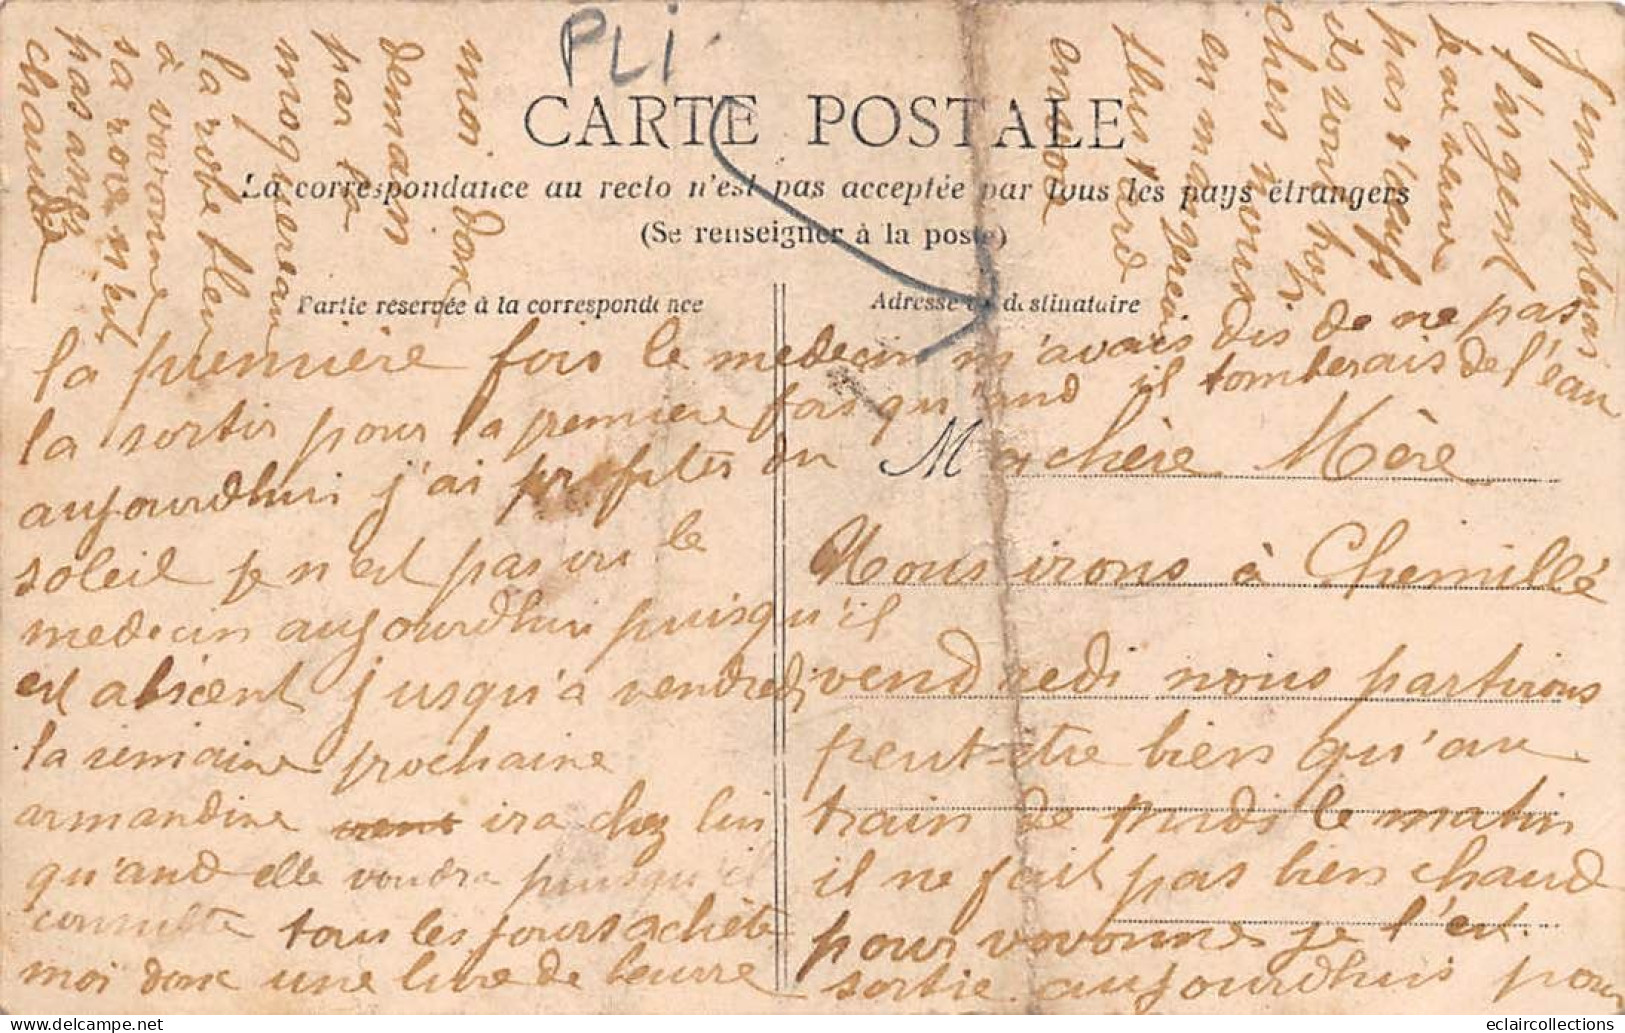 PLI
CARTE POSTALE
La correspondance au recto n'est pas acceptée par tous les pays étrangers
(Se renseigner à la poste)
Partie reservée à la correspondance
Adresse du destinataire
Ma chère Mère
Nous irons à Chemillé
vendredi nous partirons
peut-etre bien qu'au
train de midi le matin
il ne fait pas bien chaud
pour vovonne je l'est
sortie aujourdhui pour
la première fois le medecin m'avais dis de ne pas
la sortir pour la premiere fois qu'and il tomberais de l'eau
aujourdhui j'ai profiter du
soleil je n'est pas vu le
medecin aujourdhui puisqu'il
est absent jusqu'a vendredi
la semaine prochaine
armandine ira chez lui
qu'and elle voudra puisqu'il
consulte tous les jours achète
moi donc une livre de beurre
moi donc
demain
par ta
moquereau
la robe bleu
à vovonne
sa rose n'est
pas assé
chaude
J'emporterais
l'argent
je ne
pas d'oeufs
ils sont trop
chers nous
en mangerons
plus tard
encore
eclaircollections